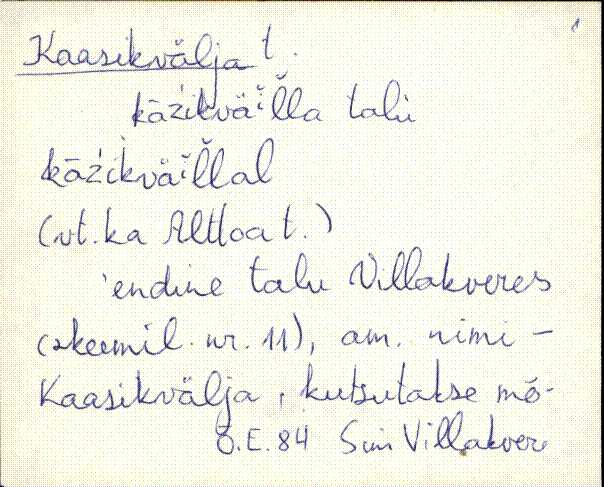 Kaasikvälja t.
kāžikväĭl̆l̆a talu
kāžikväĭl̆l̆al
(vt. ka Altloa t.)
'endine talu Villakveres
(skeemil nr. 11), am. nimi -
Kaasikvälja, kutsutakse mõ-
O.E. 84 Sim Villakvere